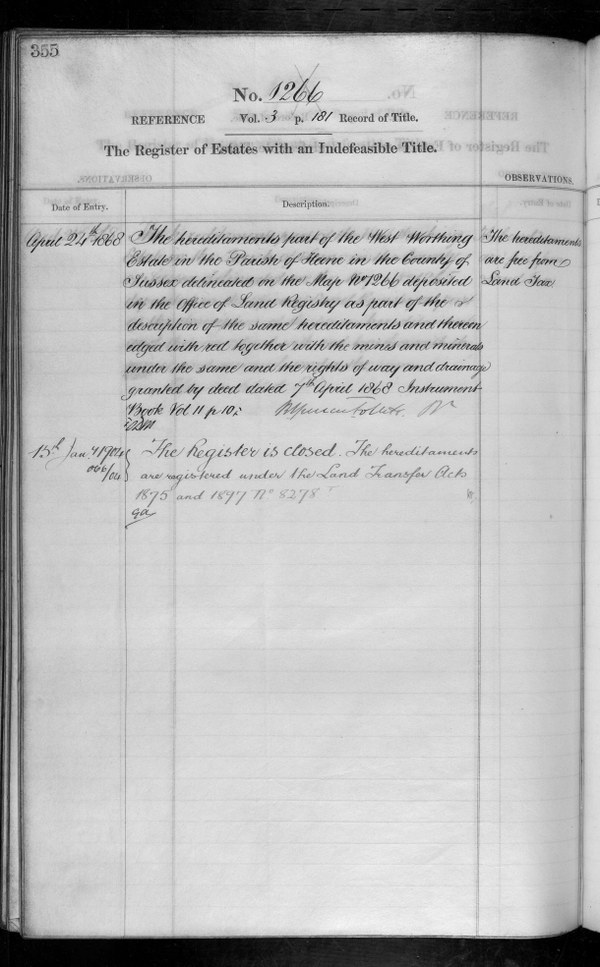 355
No. 1266
REFERENCE Vol. 3 p. 181 Record of Title.
The Register of Estates with an Indefeasible Title.
OBSERVATIONS.
Date of Entry.
Description.
April 24th 1868
The hereditaments part of the West Worthing
Estate in the Parish of Heene in the County of
Sussex delineated on the Map No 1266 deposited
in the Office of Land Registry as part of the
description of the same hereditaments and thereon
edged with red together with the mines and minerals
under the same and the rights of way and drainage
granted by deed dated 7th April 1868 Instrument
Book Vol 11 p 10
The hereditaments
are free from
Land Tax
15th Jan. 1904
066/04
The Register is closed. The hereditaments
are registered under the Land Transfer Acts
1875 and 1897 No 8278